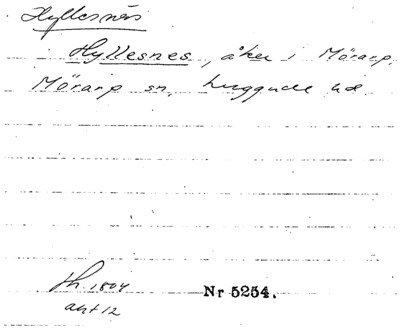 Hyllesnäs
Hyllesnes, åker i Mörarp,
Mörarp sn, Luggude hd.
th. 1804
akt 12
Nr 5254.